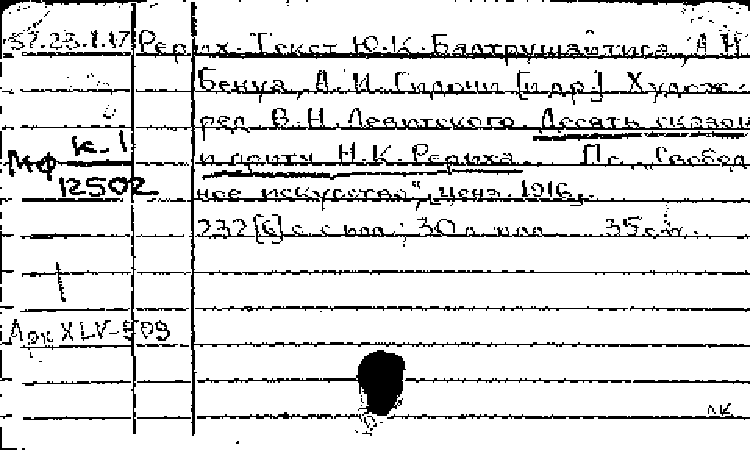 37.23.1.17 Рерих. Текст Ю.К. Балтрушайтиса, А.Н.
Бенуа, А.И. Гидони [и др.] Худож.-
ред В.Н. Левитского. Десять сказок
и притч Н.К. Рериха. Пг., "Свобод
ное искусство", ценз. 1916.
232 [6] с с илл; 30 л илл 35 см.
Мф к.1
12502
Арх XLV-509
ЛК